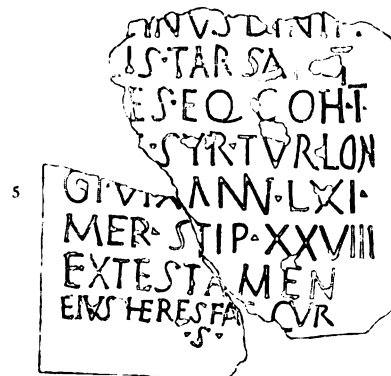 IS·TARSA
ES·EQ COH·I·
SYR·TVR·LON
GI·VIX ANN·LXI·
5
MER· STIP·XXVIII
EXTESTAMEN
EIVS HERES FA CVR
·S·